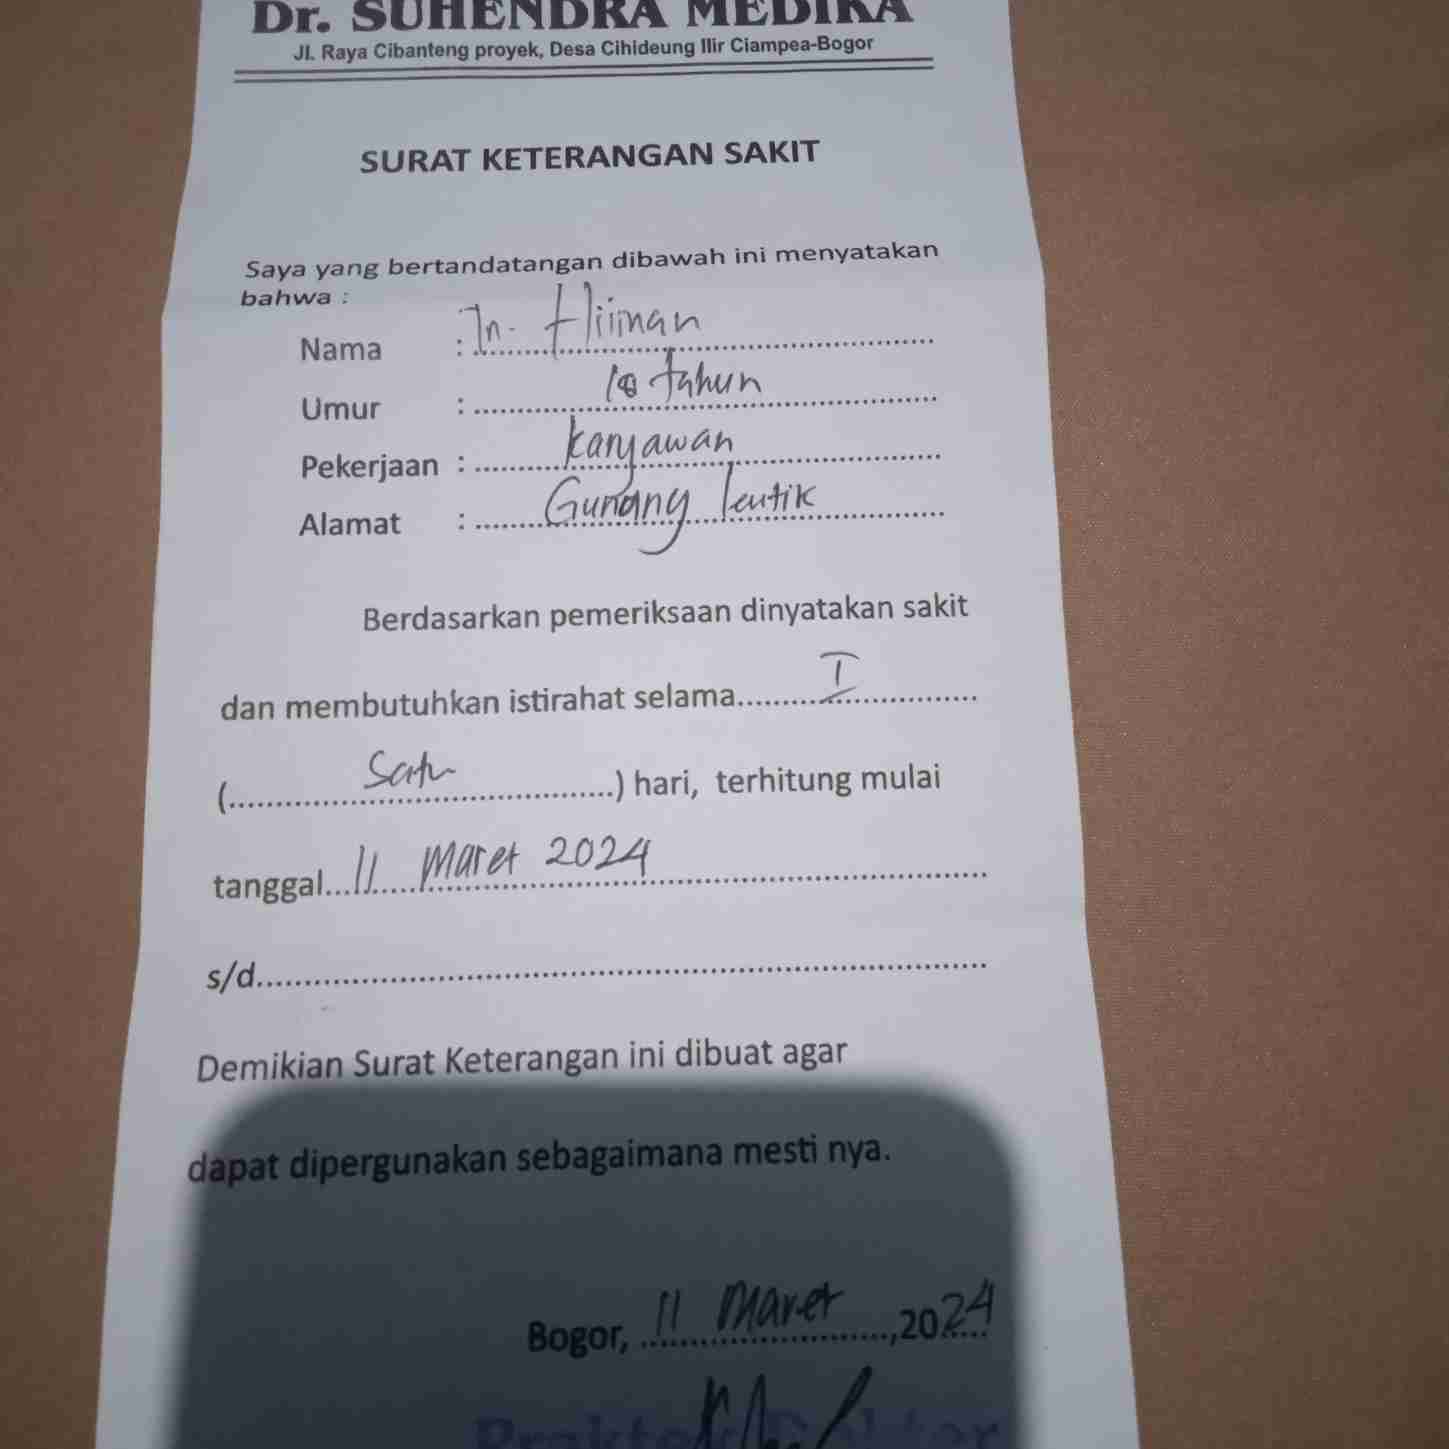 Dr. SUHENDRA MEDIKA
Jl. Raya Cibanteng proyek, Desa Cihideung Ilir Ciampea-Bogor
SURAT KETERANGAN SAKIT
Saya yang bertandatangan dibawah ini menyatakan
bahwa :
Nama : Tn.
Umur : tahun
Pekerjaan : karyawan
Alamat : Gunung leutik
Berdasarkan pemeriksaan dinyatakan sakit
dan membutuhkan istirahat selama I
( Satu ) hari, terhitung mulai
tanggal 11 Maret 2024
s/d
Demikian Surat Keterangan ini dibuat agar
dapat dipergunakan sebagaimana mesti nya.
Bogor, 11 Maret ,2024
Praktek Dokter